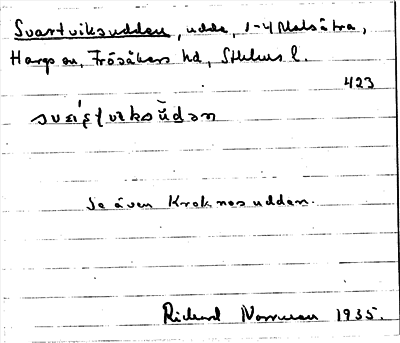 Svartviksudden, udde, 1-4 Malsätra,
Hargs sn, Frösåkers hd, Sthlms l.
423
Se även Kroknosudden.
Rickard Norrman 1935.